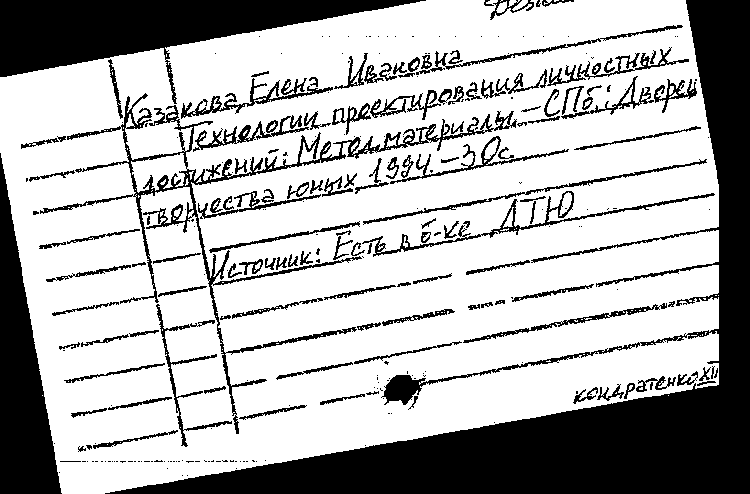 Казакова, Елена Ивановна
Технологии проектирования личностных
достижений: Метод. материалы. – СПб.: Дворец
творчества юных, 1994. – 30с.
Источник: Есть в б-ке ДТЮ
кондратенко, XII